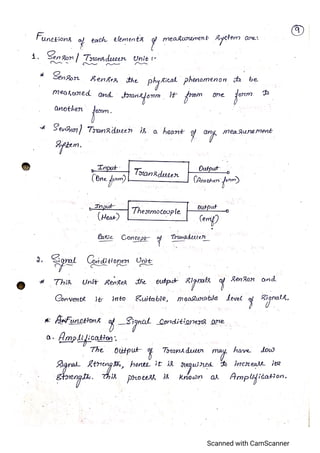 9
Functions of each elements of measurement system are:
1. Sensor / Transducer Unit :-
* Sensor senses the physical phenomenon to be
measured and transform it from one form to
another form.
* Sensor/ Transducer is a heart of any measurement
system.
Input
(One form)
Transducer
Output
(Another form)
Input
(Heat)
Thermocouple
output
(emf)
Basic Concept of Transducer
2. Signal Conditioner Unit
* This Unit senses the output signals of sensor and
Converts it into suitable, measurable level of signals.
* Functions of Signal Conditioners are
a. Amplification:
The output of Transducer may have low
signal strength, hence it is required to increase its
strength. This process is known as Amplification.
Scanned with CamScanner